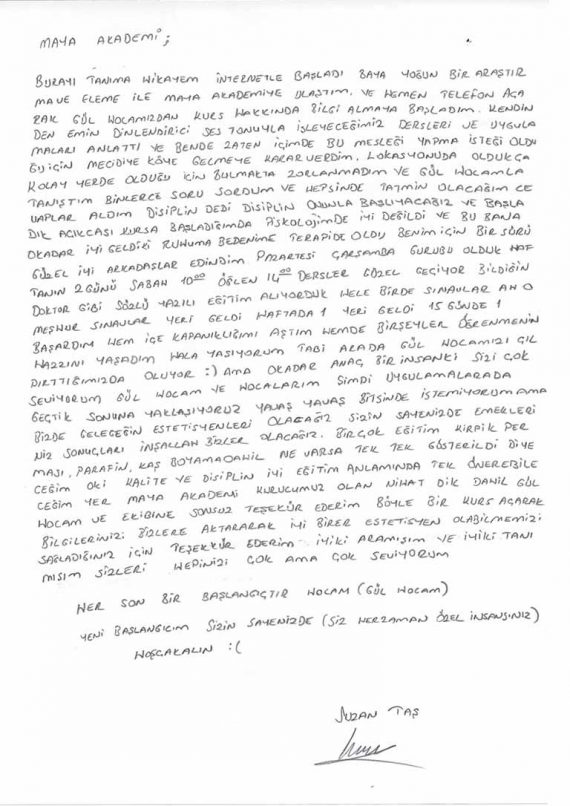 MAYA AKADEMİ;
BURAYI TANIMA HİKAYEM İNTERNETLE BAŞLADI BAYA YOĞUN BİR ARAŞTIR
MA VE ELEME İLE MAYA AKADEMİYE ULAŞTIM. VE HEMEN TELEFON AÇA
RAK GÜL HOCAMIZDAN KURS HAKKINDA BİLGİ ALMAYA BAŞLADIM. KENDİN
DEN EMİN DİNLENDİRİCİ SES TONUYLA İŞLEYECEĞİMİZ DERSLERİ VE UYGULA
MALARI ANLATTI VE BENDE ZATEN İÇİMDE BU MESLEĞİ YAPMA İSTEĞİ OLDU
ĞU İÇİN MECİDİYE KÖYE GELMEYE KARAR VERDİM. LOKASYONUDA OLDUKÇA
KOLAY YERDE OLDUĞU İÇİN BULMAKTA ZORLANMADIM VE GÜL HOCAMLA
TANIŞTIM BİNLERCE SORU SORDUM VE HEPSİNDE TATMİN OLACAĞIM CE
VAPLAR ALDIM DİSİPLİN DEDİ DİSİPLİN ONUNLA BAŞLIYACAĞIZ VE BAŞLA
DIK AÇIKCASI KURSA BAŞLADIĞIMDA PİSKOLOJİMDE İYİ DEĞİLDİ VE BU BANA
OKADAR İYİ GELDİKİ RUHUMA BEDENİME TERAPİDE OLDU BENİM İÇİN BİR SÜRÜ
GÜZEL İYİ ARKADAŞLAR EDİNDİM PAZARTESİ ÇARŞAMBA GURUBU OLDUK HAF
TANIN 2 GÜNÜ SABAH 10.00 ÖĞLEN 14.00 DERSLER GÜZEL GEÇİYOR BİLDİĞİN
DOKTOR GİBİ SÖZLÜ YAZILI EĞİTİM ALIYORDUK HELE BİRDE SINAVLAR AH O
MEŞHUR SINAVLAR YERİ GELDİ HAFTADA 1 YERİ GELDİ 15 GÜNDE 1
BAŞARDIM HEM İÇE KAPANIKLIĞIMI AŞTIM HEMDE BİRŞEYLER ÖĞRENMENİN
HAZZINI YAŞADIM HALA YAŞIYORUM TABİ ARADA GÜL HOCAMIZI ÇIL
DIRTTIĞIMIZDA OLUYOR :) AMA OKADAR ANAÇ BİR İNSANKİ SİZİ ÇOK
SEVİYORUM GÜL HOCAM VE HOCALARIM ŞİMDİ UYGULAMALARADA
GEÇTİK SONUNA YAKLAŞIYORUZ YAVAŞ YAVAŞ BİTSİNDE İSTEMİYORUM AMA
BİZDE GELECEĞİN ESTETİSYENLERİ OLACAĞIZ SİZİN SAYENİZDE EMEKLERİ
NİZ SONUÇLARI İNŞALLAH BİZLER OLACAĞIZ. BİRÇOK EĞİTİM KİRPİK PER
MASI, PARAFİN, KAŞ BOYAMADAHİL NE VARSA TEK TEK GÖSTERİLDİ DİYE
CEĞİM OKİ KALİTE VE DİSİPLİN İYİ EĞİTİM ANLAMINDA TEK ÖNEREBİLE
CEĞİM YER MAYA AKADEMİ KURUCUMUZ OLAN NİHAT DİK DAHİL GÜL
HOCAM VE EKİBİNE SONSUZ TEŞEKÜR EDERİM BÖYLE BİR KURS AÇARAK
BİLGİLERİNİZİ BİZLERE AKTARARAK İYİ BİRER ESTETİSYEN OLABİLMEMİZİ
SAĞLADIĞINIZ İÇİN TEŞEKKÜR EDERİM İYİKİ ARAMIŞIM VE İYİKİ TANI
MIŞIM SİZLERİ HEPİNİZİ ÇOK AMA ÇOK SEVİYORUM
HER SON BİR BAŞLANGIÇTIR HOCAM (GÜL HOCAM)
YENİ BAŞLANGICIM SİZİN SAYENİZDE (SİZ HERZAMAN ÖZEL İNSANSINIZ)
HOŞÇAKALIN :(
SUZAN TAŞ